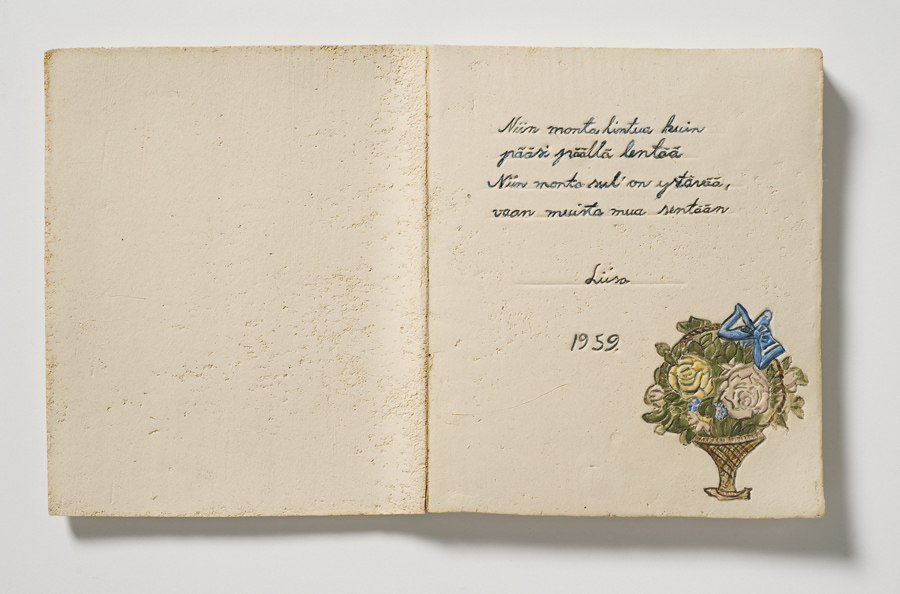 Niin monta lintua kuin
pääsi päällä lentää
Niin monta sul' on ystävää,
vaan muista mua sentään
Liisa
1959.